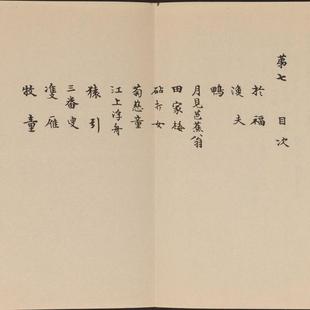 第七 目次
於福
漁夫
鴨
月見芭蕉翁
田家椿
砧打女
菊慈童
江上浮舟
猿引
三番叟
雙雁
牧童